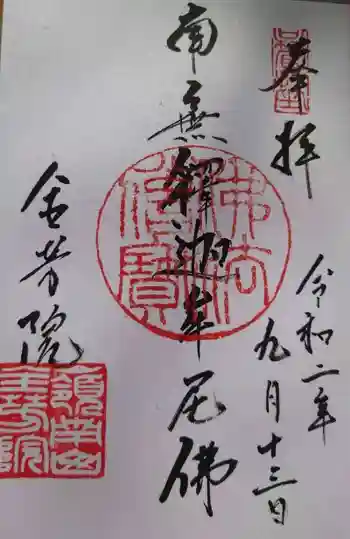 奉拝
令和二年
九月十三日
南無釋迦牟尼佛
佛法僧寶
金芳院